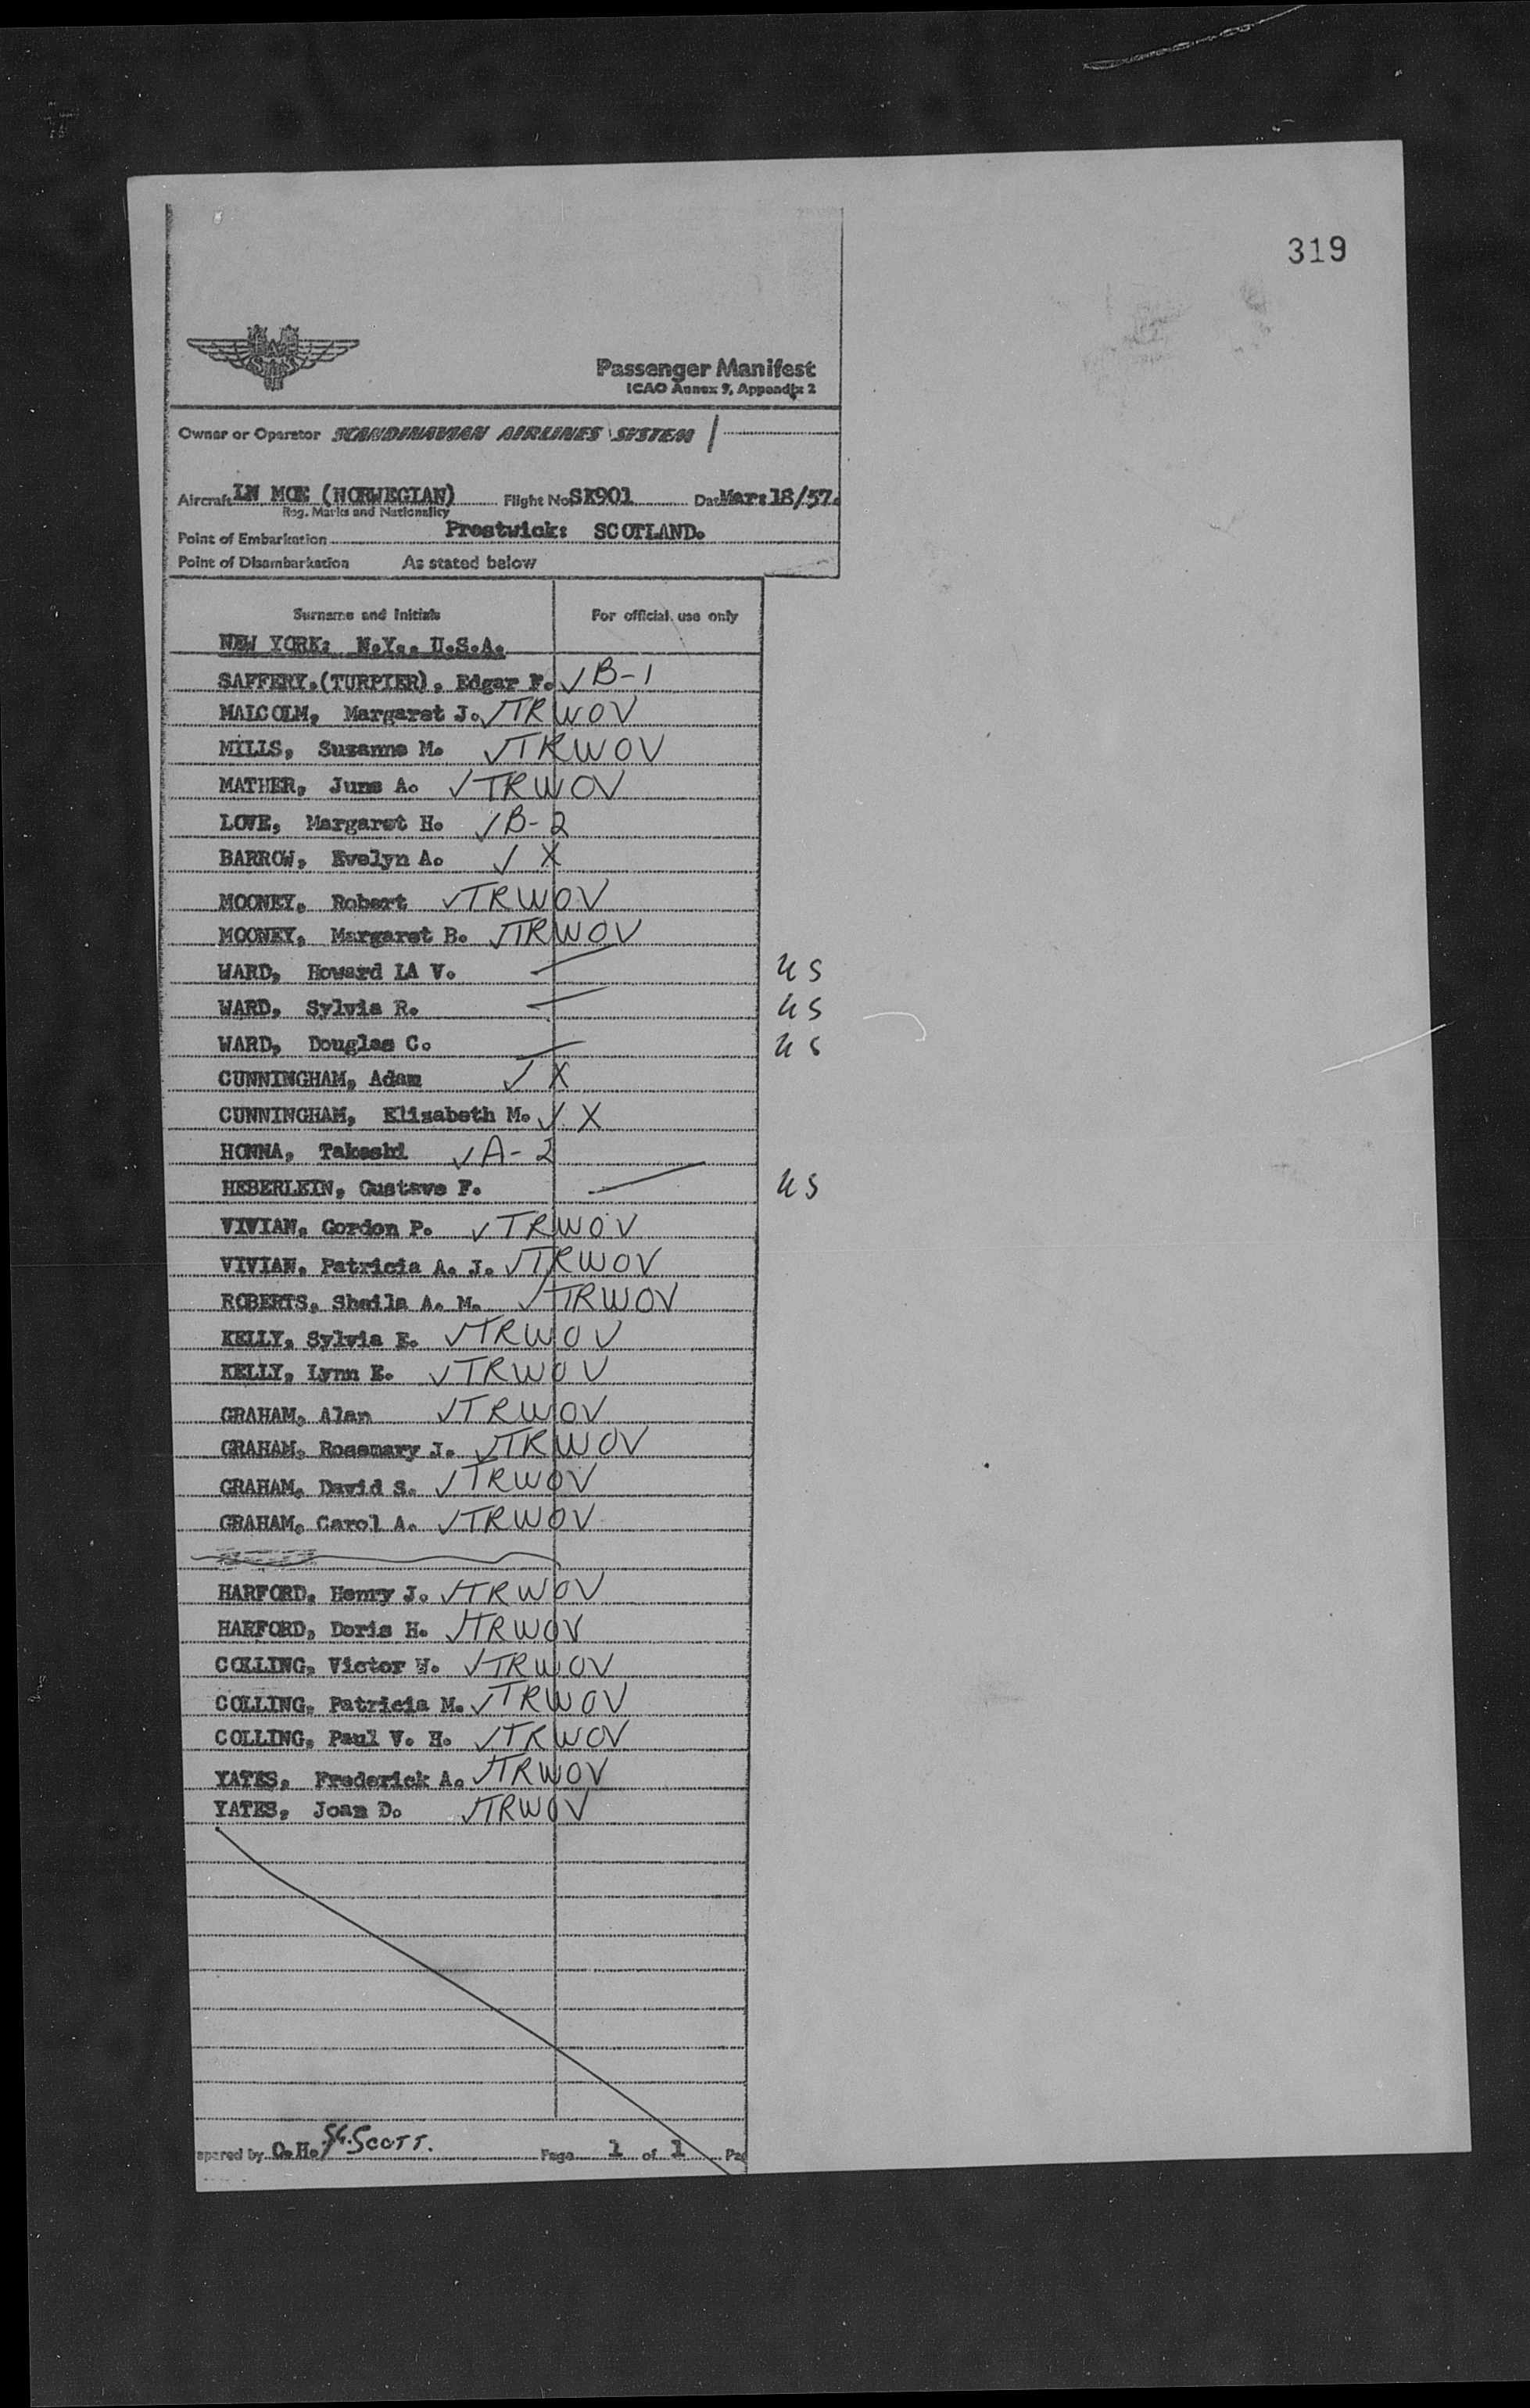 319
SAS
Passenger Manifest
ICAO Annex 9, Appendix 2
Owner or Operator SCANDINAVIAN AIRLINES SYSTEM
Aircraft LN MOE (NORWEGIAN) Flight No. SK901 Date Mar: 18/57.
Reg. Marks and Nationality
Point of Embarkation Prestwick: SCOTLAND.
Point of Disembarkation As stated below
Surname and Initials For official use only
NEW YORK: N.Y., U.S.A.
SAFFERY, (TURPIER), Edgar F. ✓ B-1
MALCOLM, Margaret J. ✓ TRWOV
MILLS, Suzanne M. ✓ TRWOV
MATHER, June A. ✓ TRWOV
LOVE, Margaret H. ✓ B-2
BARROW, Evelyn A. ✓ X
MOONEY, Robert ✓ TRWOV
MOONEY, Margaret B. ✓ TRWOV
WARD, Howard LA V. US
WARD, Sylvia R. US
WARD, Douglas C. US
CUNNINGHAM, Adam ✓ X
CUNNINGHAM, Elizabeth M. ✓ X
HONNA, Takeshi ✓ A-2
HEBERLEIN, Gustave F. US
VIVIAN, Gordon P. ✓ TRWOV
VIVIAN, Patricia A. J. ✓ TRWOV
ROBERTS, Sheila A. M. ✓ TRWOV
KELLY, Sylvia E. ✓ TRWOV
KELLY, Lynn E. ✓ TRWOV
GRAHAM, Alan ✓ TRWOV
GRAHAM, Rosemary J. ✓ TRWOV
GRAHAM, David S. ✓ TRWOV
GRAHAM, Carol A. ✓ TRWOV
HARFORD, Henry J. ✓ TRWOV
HARFORD, Doris H. ✓ TRWOV
COLLING, Victor W. ✓ TRWOV
COLLING, Patricia M. ✓ TRWOV
COLLING, Paul V. H. ✓ TRWOV
YATES, Frederick A. ✓ TRWOV
YATES, Joan D. ✓ TRWOV
epared by O.H. SCOTT. Page 1 of 1 Pa